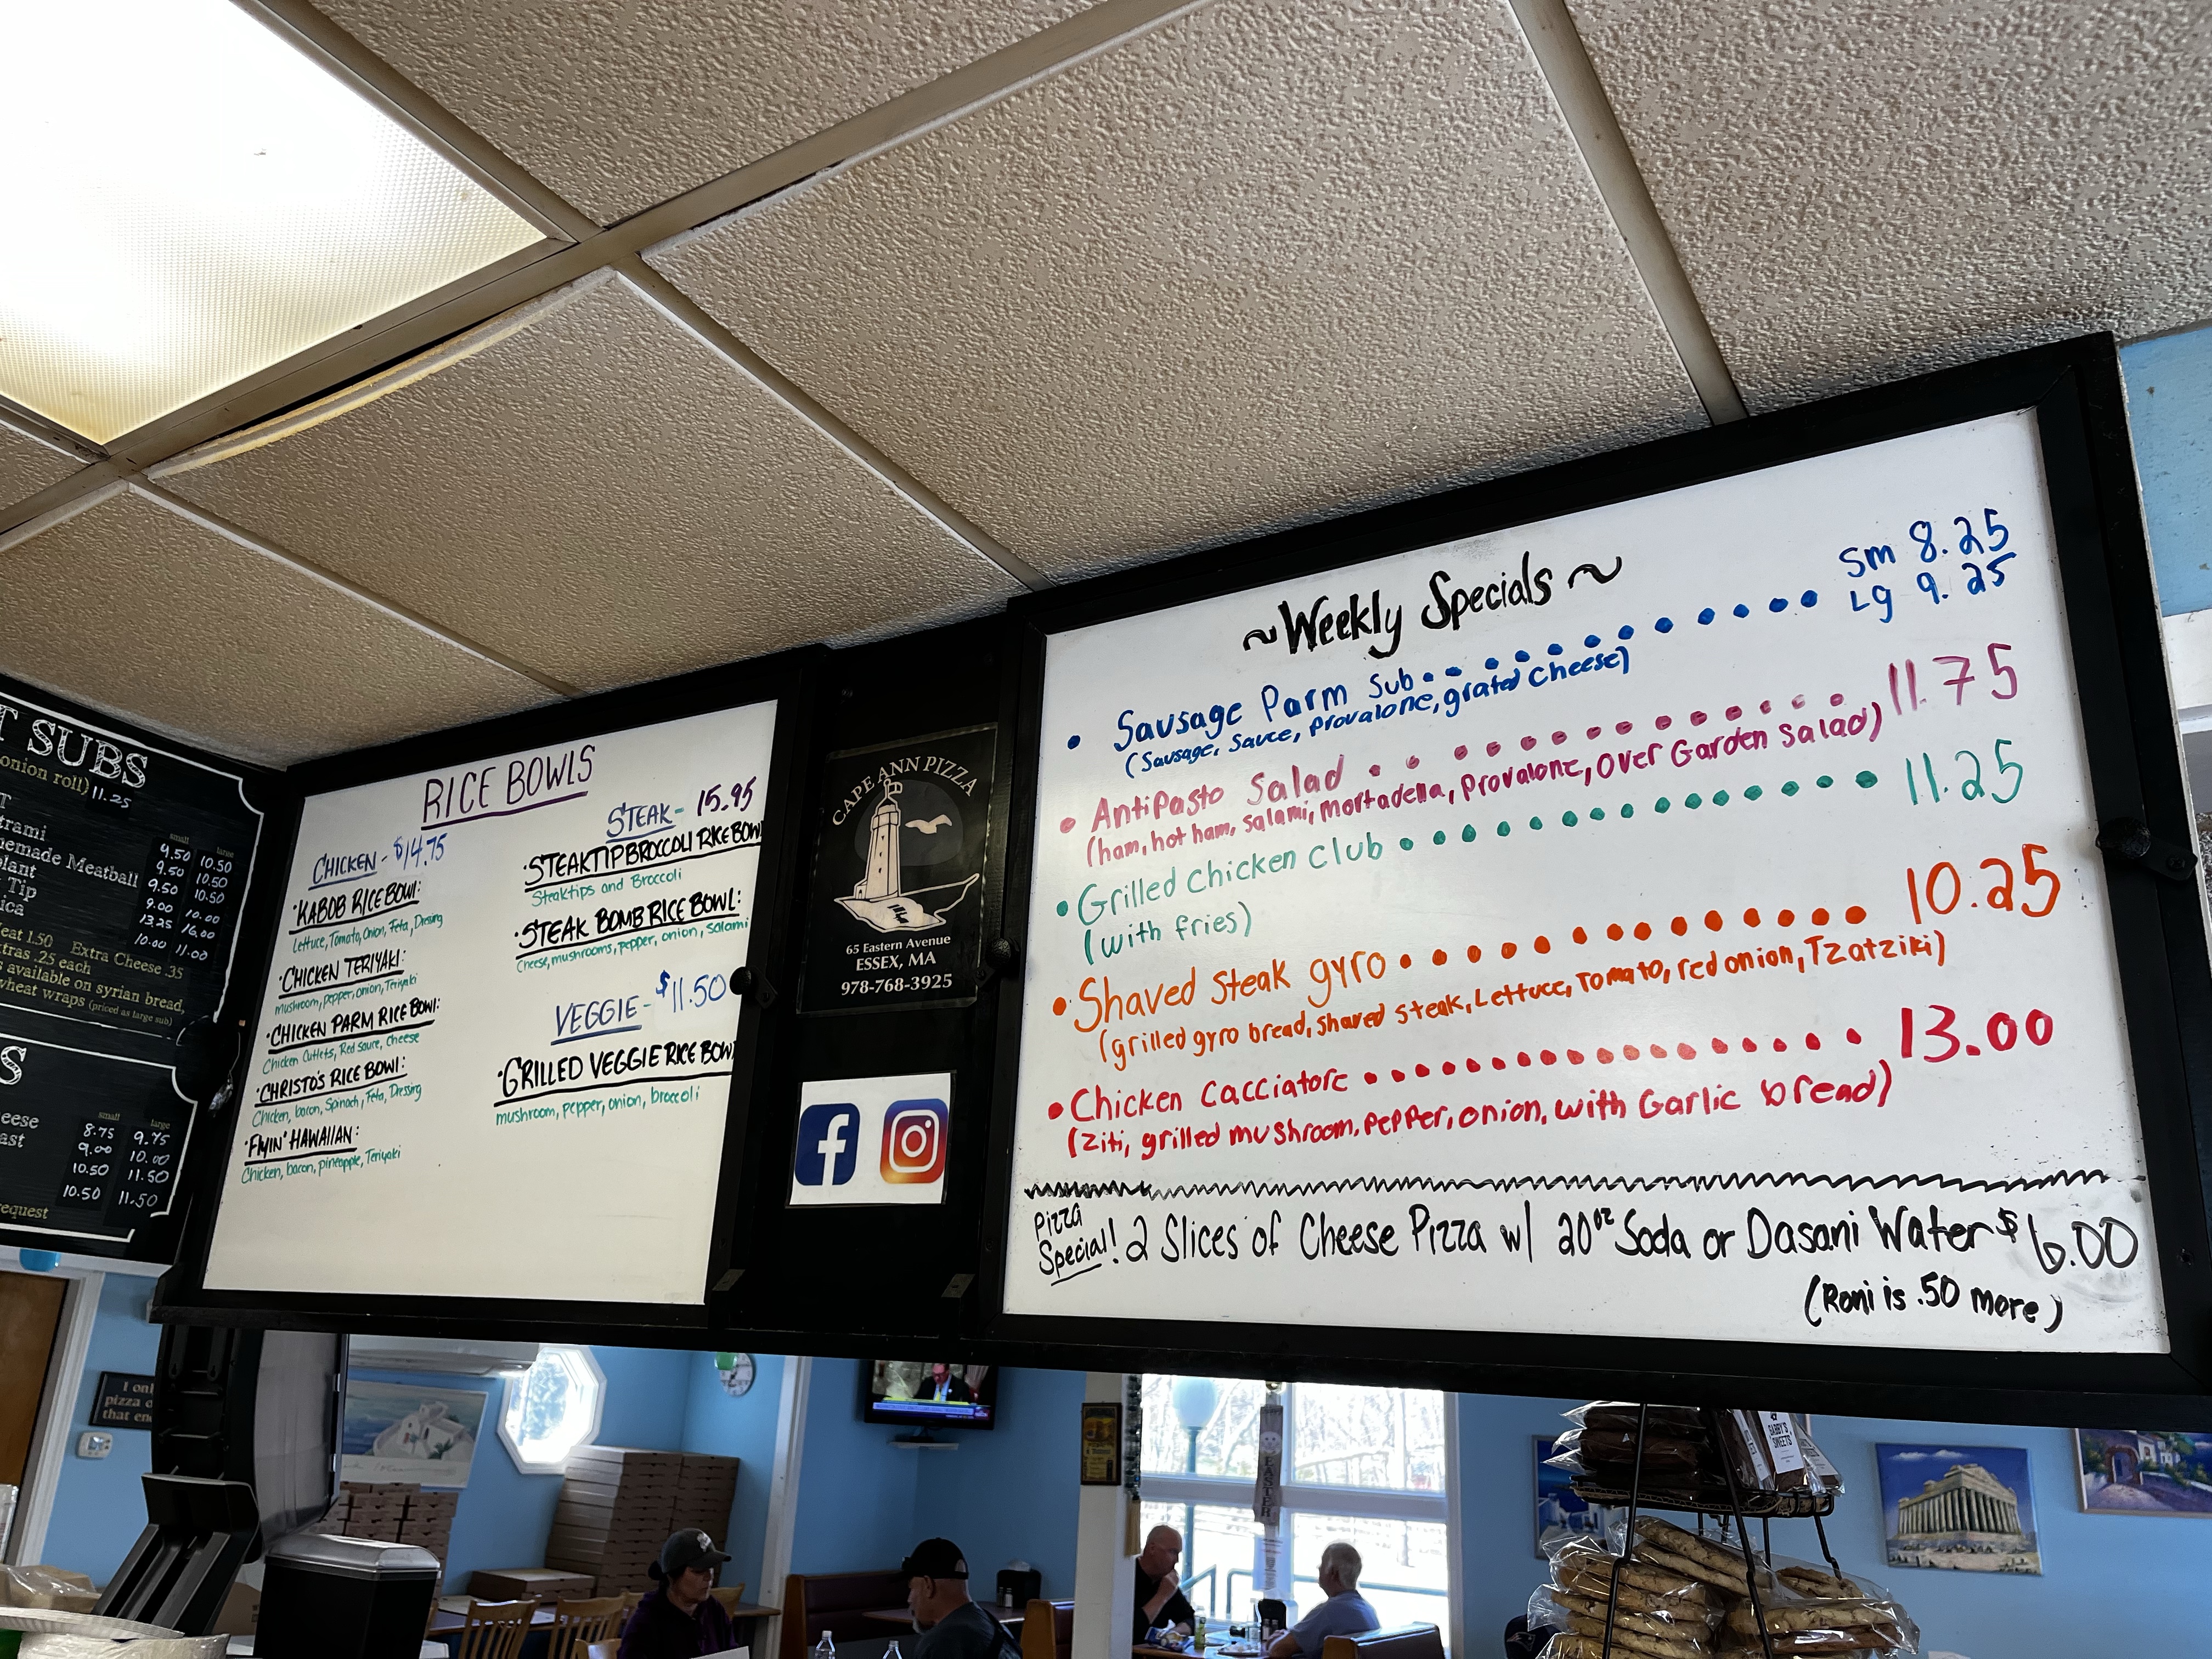 T SUBS
onion roll) 11.25
small large
trami 9.50 10.50
emade Meatball 9.50 10.50
plant 9.50 10.50
Tip 9.00 10.00
ica 13.25 16.00
10.00 11.00
eat 1.50 Extra Cheese .35
xtras .25 each
s available on syrian bread,
wheat wraps (priced as large sub)
S
small large
eese 8.75 9.75
ast 9.00 10.00
10.50 11.50
10.50 11.50
equest
RICE BOWLS
CHICKEN - $14.75
•KABOB RICE BOWL:
Lettuce, Tomato, Onion, Feta, Dressing
•CHICKEN TERIYAKI:
mushroom, pepper, onion, Teriyaki
•CHICKEN PARM RICE BOWL:
Chicken Cutlets, Red sauce, Cheese
•CHRISTO'S RICE BOWL:
Chicken, bacon, Spinach, Feta, Dressing
•FLYIN' HAWAIIAN:
Chicken, bacon, pineapple, Teriyaki
STEAK - 15.95
•STEAK TIP BROCCOLI RICE BOWL
Steaktips and Broccoli
•STEAK BOMB RICE BOWL:
Cheese, mushrooms, pepper, onion, salami
VEGGIE - $11.50
•GRILLED VEGGIE RICE BOWL
mushroom, pepper, onion, broccoli
CAPE ANN PIZZA
65 Eastern Avenue
ESSEX, MA
978-768-3925
~Weekly Specials~
• Sausage Parm Sub Sm 8.25
Lg 9.25
(Sausage, Sauce, Provalone, grated Cheese)
• Antipasto Salad 11.75
(ham, hot ham, salami, mortadella, Provalone, Over Garden Salad)
• Grilled Chicken Club 11.25
(with fries)
• Shaved Steak gyro 10.25
(grilled gyro bread, shaved steak, Lettuce, Tomato, red onion, Tzatziki)
• Chicken Cacciatore 13.00
(Ziti, grilled mushroom, pepper, onion, with Garlic bread)
Pizza
Special! 2 Slices of Cheese Pizza w/ 20oz Soda or Dasani Water $6.00
(Roni is .50 more)
I onl
pizza o
that en
EASTER
SWEETS